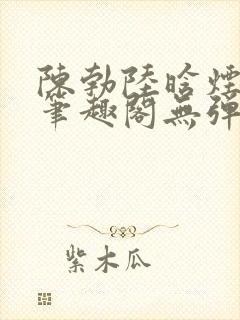 陳勃陸晗煙
筆趣閣無彈
紫木瓜